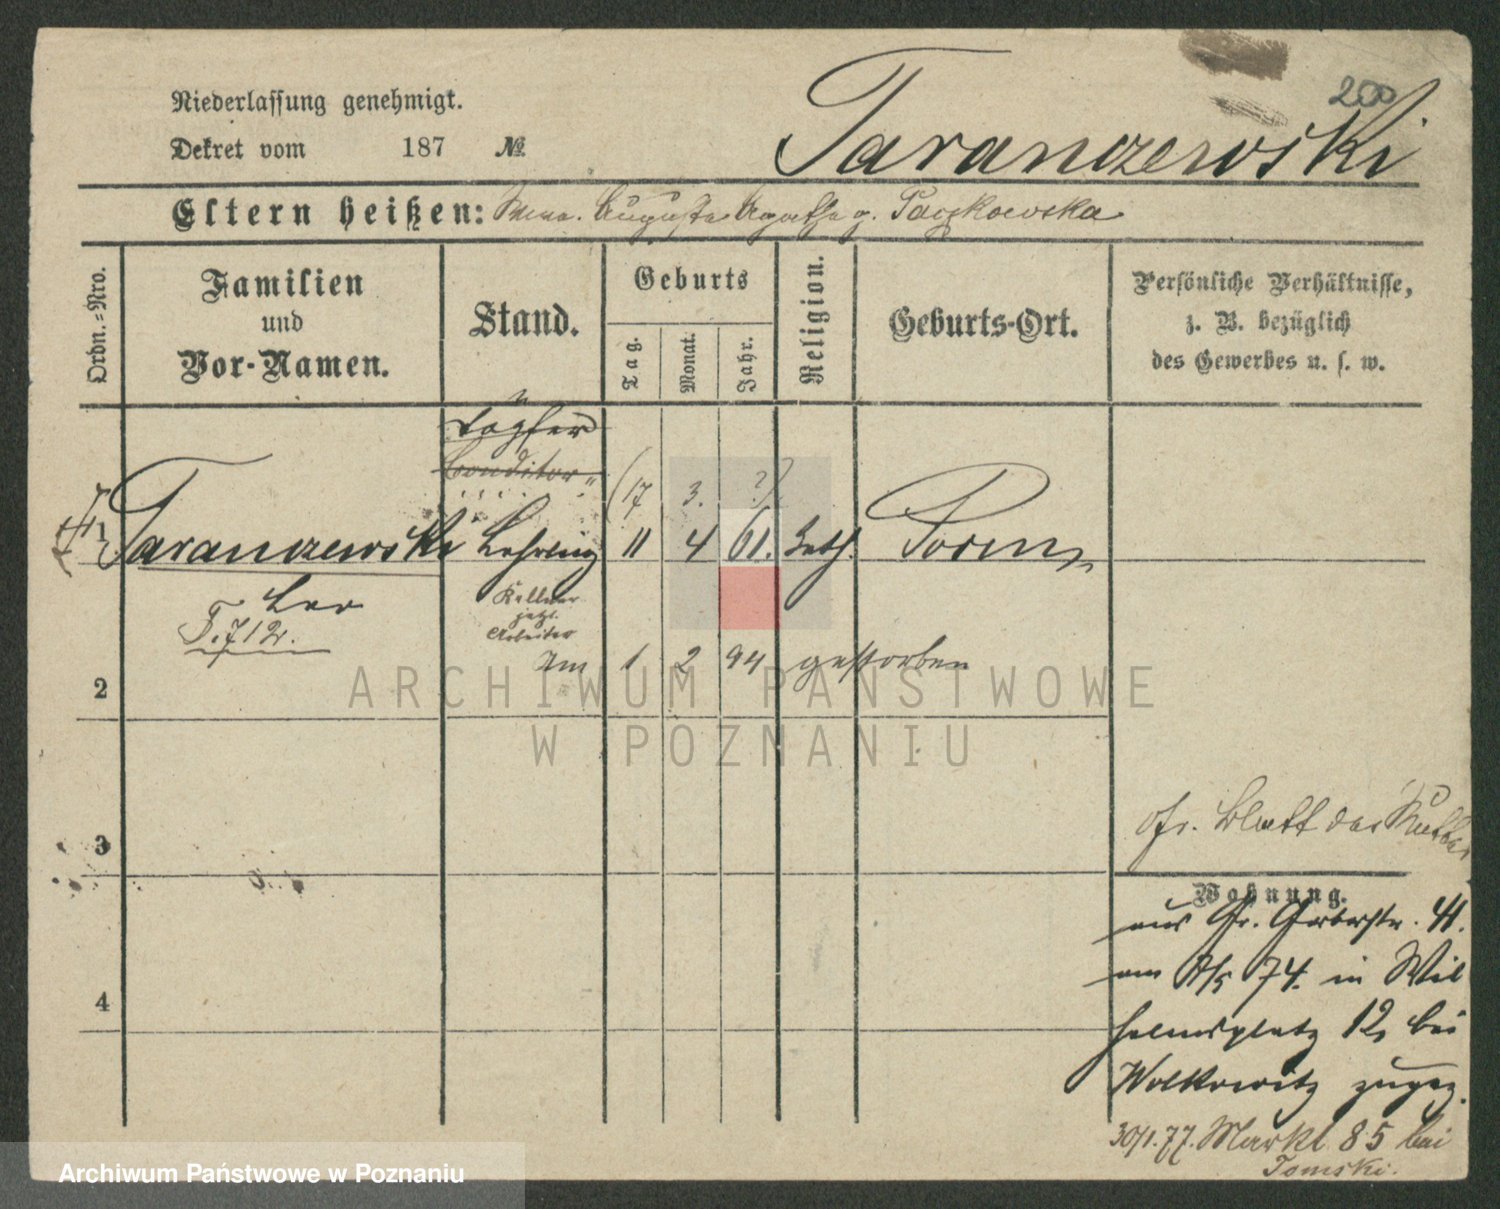 200
Niederlassung genehmigt.
Dekret vom 187 № Taranczewski
Eltern heißen: Auguste Agathe g. Paczkowska
Ordn.-Nro.
Familien
und
Vor-Namen.
Stand.
Geburts
Tag.
Monat.
Jahr.
Religion.
Geburts-Ort.
Persönliche Verhältnisse,
z. B. bezüglich
des Gewerbes u. s. w.
Töpfer
Conditor
(17 3. ?)
1 Taranczewski Lehrling 11 4 61. kath. Posen
Leo
T. 712.
Kellner
jetzt
Arbeiter
Am 1 2 94 gestorben
2
3
4
cfr. Blatt der Mutter
Wohnung.
aus Gr. Gerberstr. 41.
am 74. in Wil
helmsplatz 12, bei
Wolkowitz zugez.
30/1.77. Markt 85 bei
Tomski.
ARCHIWUM PAŃSTWOWE
W POZNANIU
Archiwum Państwowe w Poznaniu